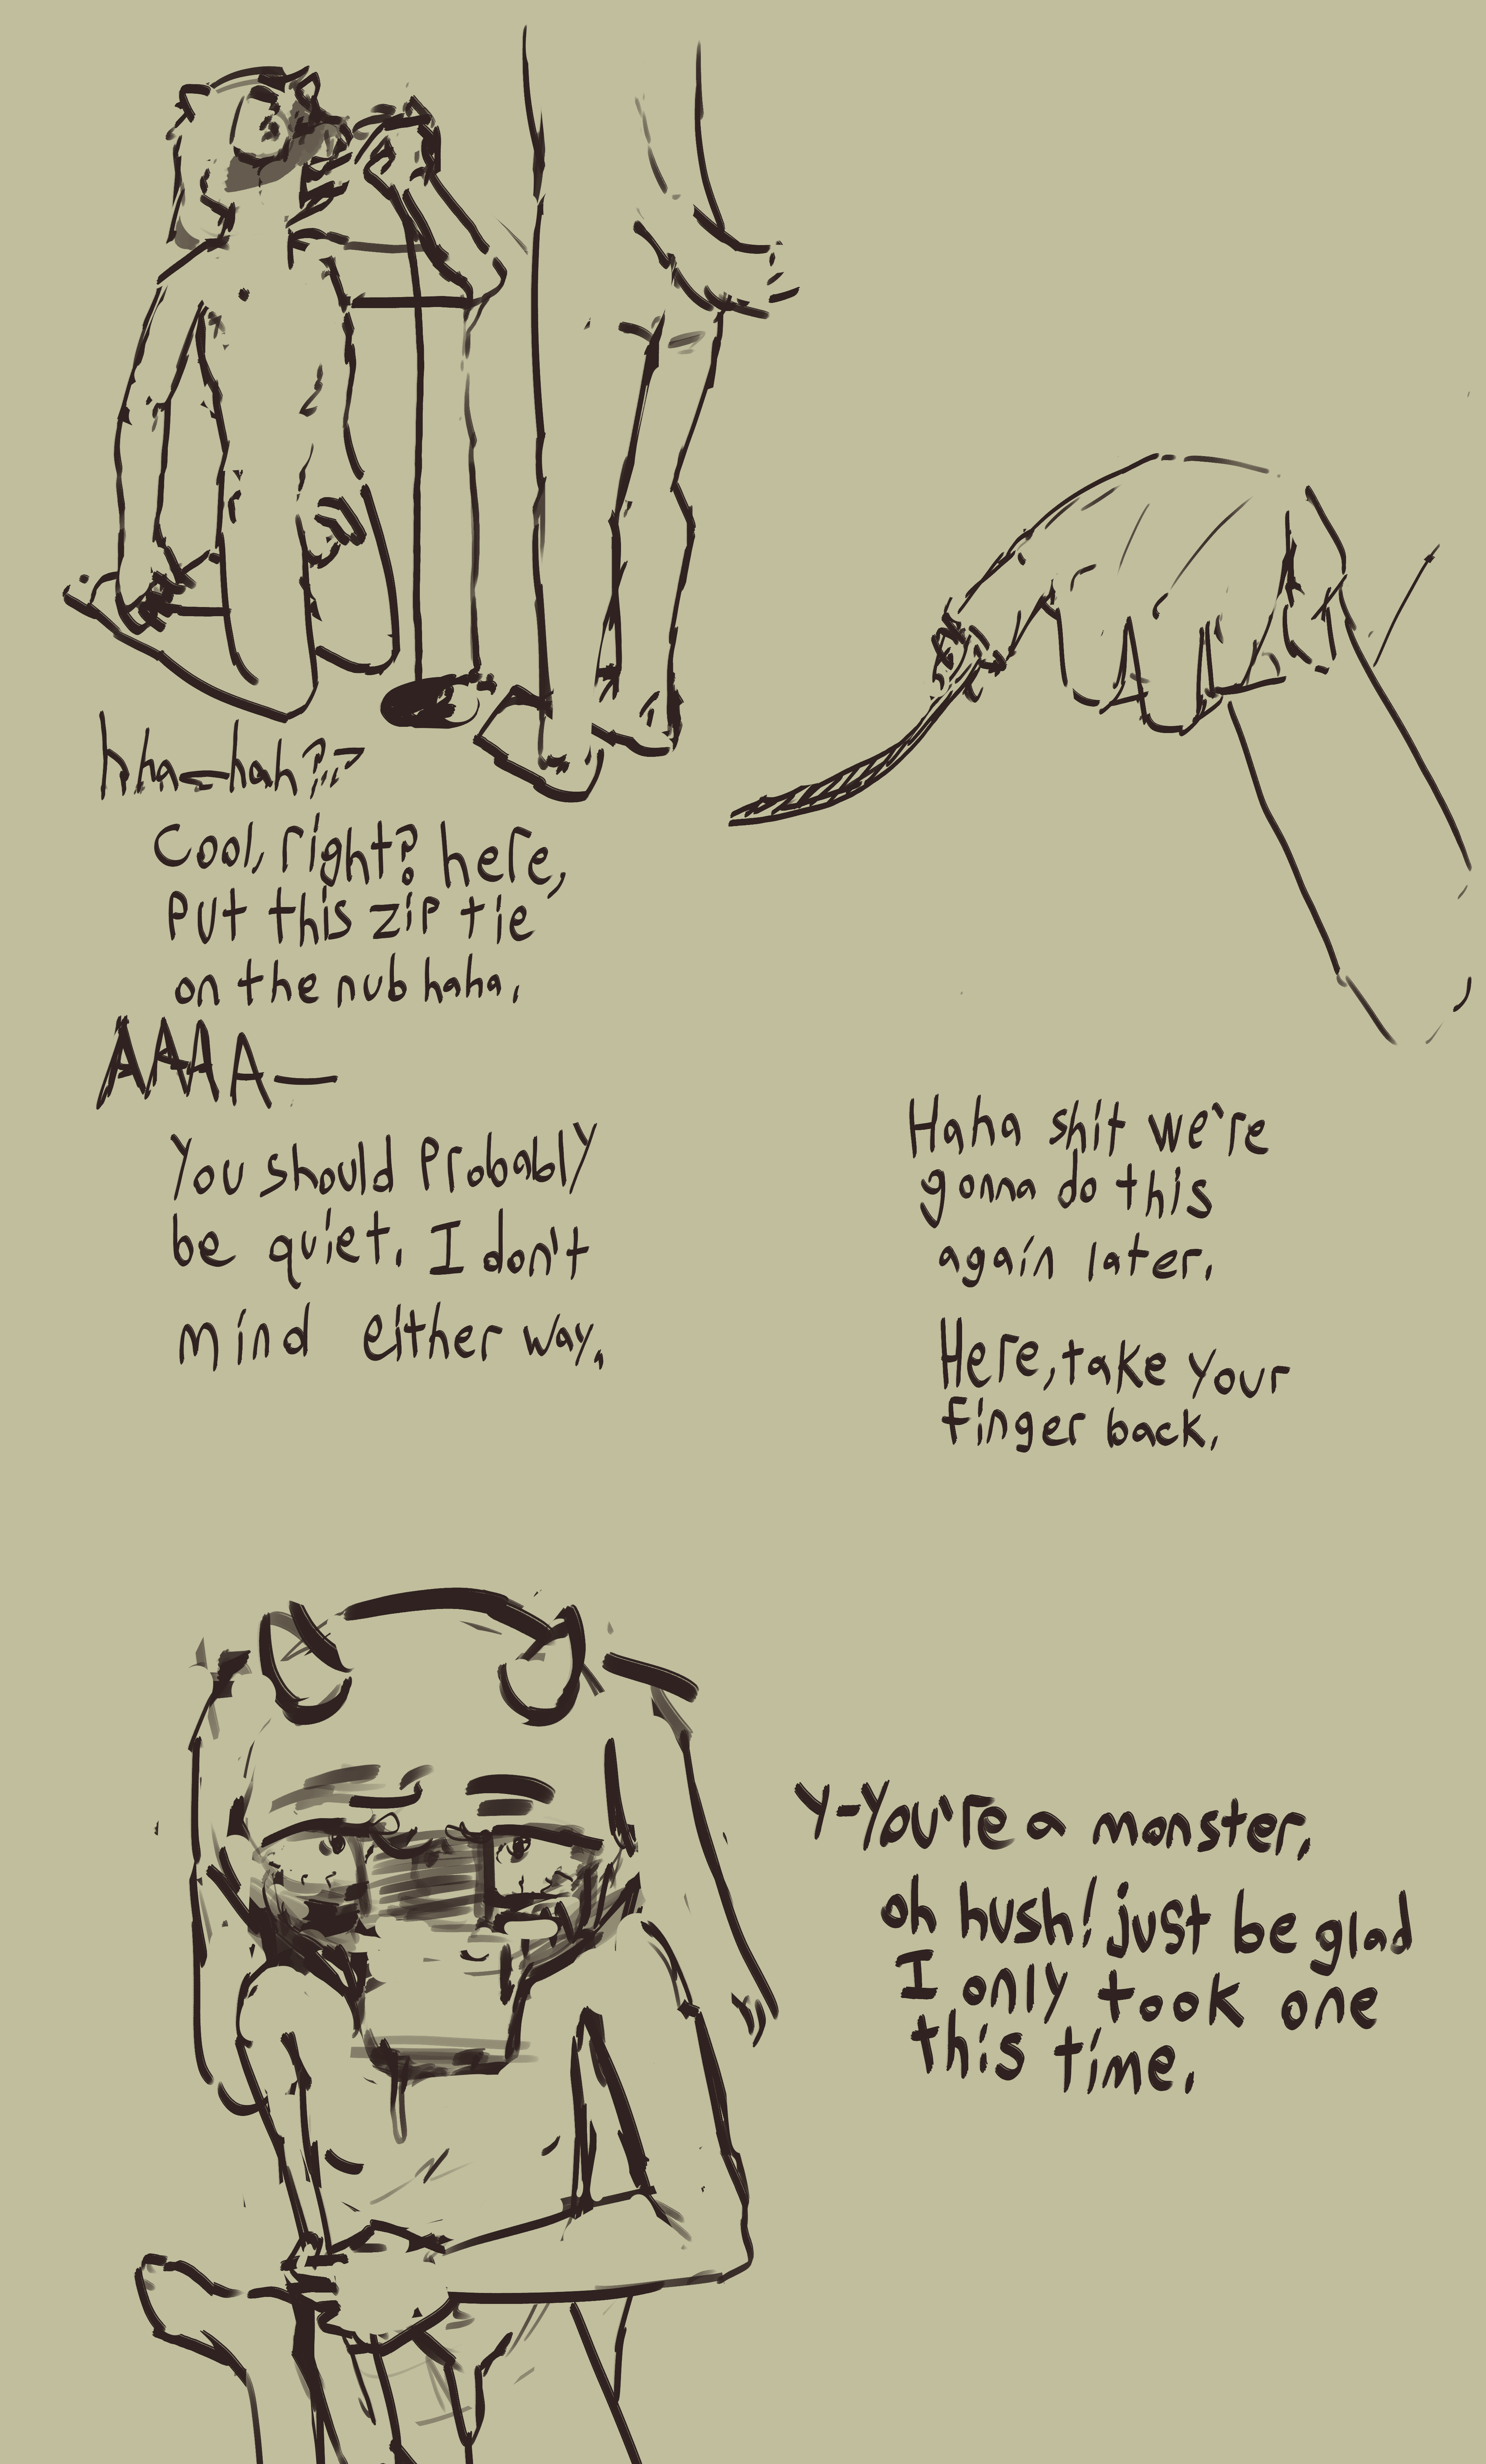 hha-hah??
Cool, right? here,
Put this zip tie
on the nub haha.
AAAA—
You should Probably
be quiet. I don't
mind either way.
Haha shit we're
gonna do this
again later.
Here, take your
finger back.
Y-You're a monster.
oh hush! just be glad
I only took one
this time.